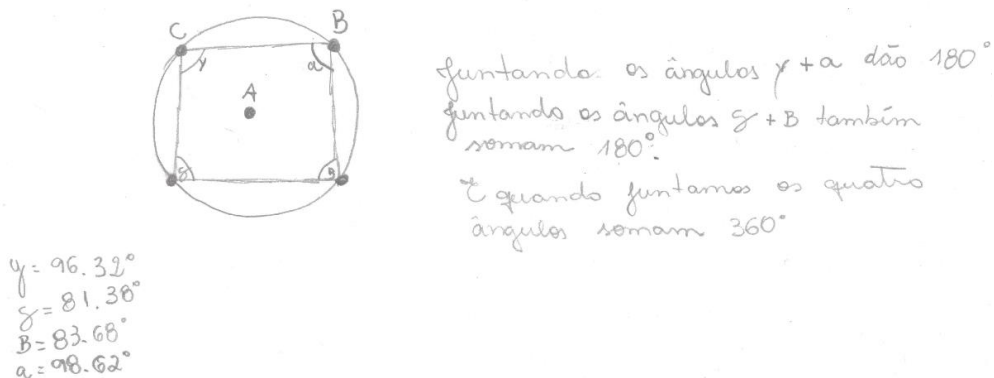 C
B
γ
a
A
δ
B
Juntando os ângulos γ + a dão 180°
Juntando os ângulos δ + B também
somam 180°.
E quando juntamos os quatro
ângulos somam 360°
γ = 96.32°
δ = 81.38°
B = 83.68°
a = 98.62°